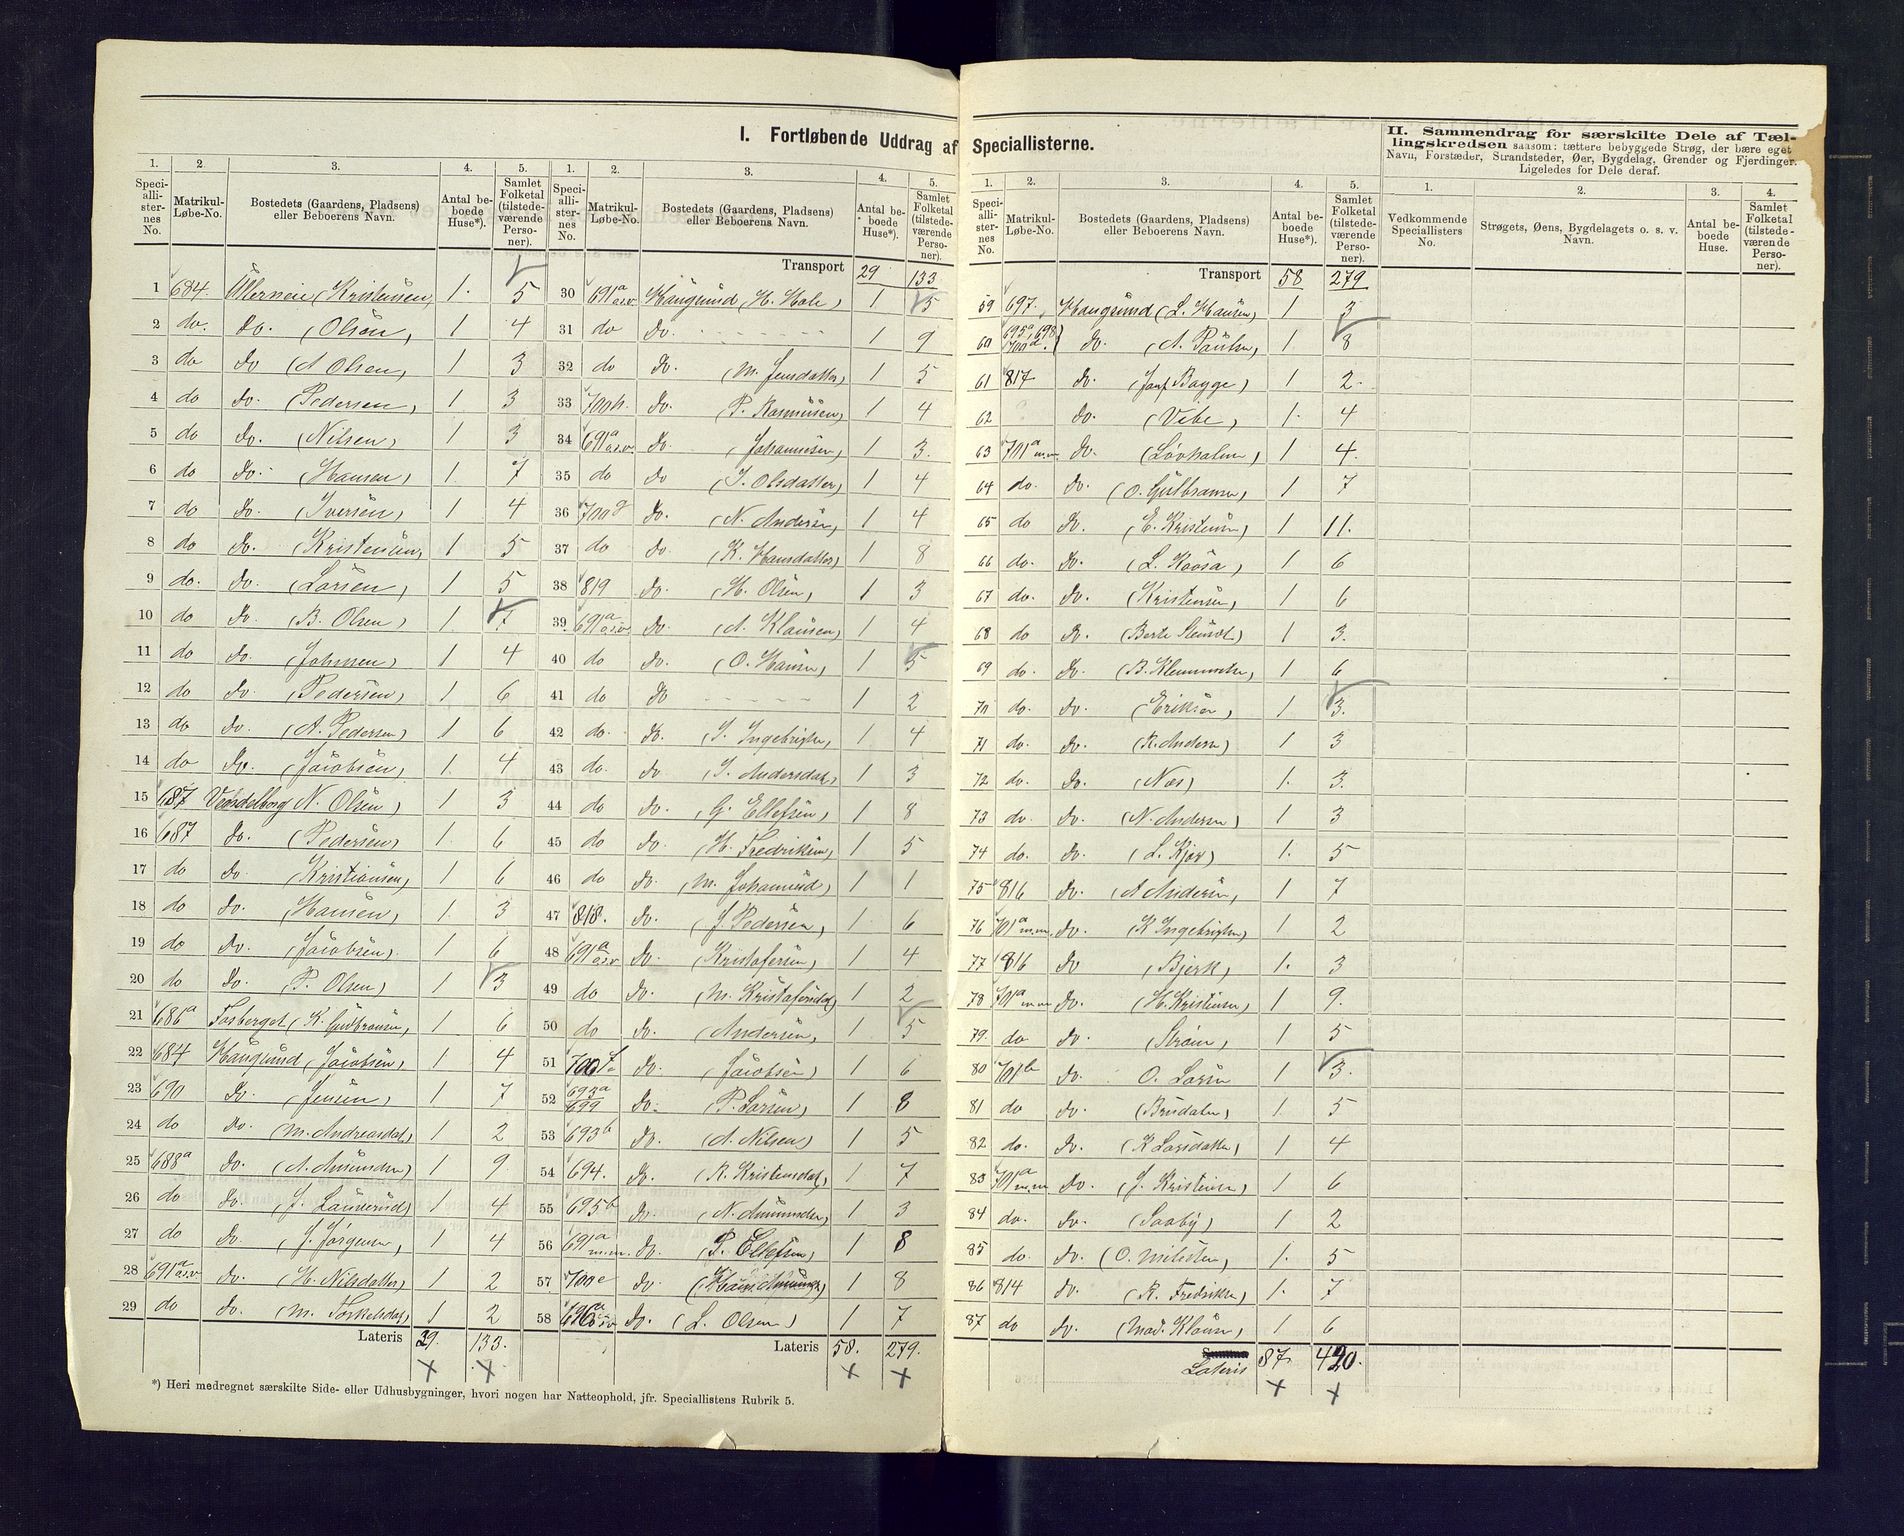 I. Fortløbende Uddrag af Speciallisterne.
II. Sammendrag for særskilte Dele af Tæl-
lingskredsen saasom: tættere bebyggede Strøg, der bære eget
Navn, Forstæder, Strandsteder, Øer, Bygdelag, Grender og Fjerdinger.
Ligeledes for Dele deraf.
1. 2. 3. 4. 5.
Speciallisternes No. Matrikul-Løbe-No. Bostedets (Gaardens, Pladsens) eller Beboerens Navn. Antal beboede Huse*). Samlet Folketal (tilstedeværende Personer).
1 684. (Kristensen) 1. 5
2 do. do. (Olsen) 1 4
3 do do (A Olsen) 1 3
4 do do. (Pedersen) 1 3
5 do do. (Nilsen) 1 3
6 do do. (Hansen) 1. 7
7 do do. (Iversen) 1 4
8 do do. (Kristensen) 1 5
9 do. do. (Larsen) 1 5
10 do do. (B. Olsen) 1 7
11 do do. (Johnsen) 1 4
12 do do. (Pedersen) 1 6
13 do do. (A. Pedersen) 1 6
14 do do. (Jacobsen) 1. 4
15 687 Vendelborg N. Olsen) 1 3
16 687 do. (Pedersen) 1. 6
17 do do. (Kristiansen) 1 6
18 do do. (Hansen) 1. 3
19 do do. (Jacobsen) 1 6
20 do do. (P. Olsen) 1 3
21 686a Fosberget (K. Gulbransen) 1 6
22 684 Haugsund (Jacobsen) 1 4
23 690 do. (Jensen) 1 7
24 do do. (M. Andreasdat) 1 2
25 688a do. (A. Amundsen) 1 9.
26 do do. (J. Landerud) 1 4
27 do do. (J. Jörgensen) 1 4
28 691a o.s.v do. (H. Nilsdatter) 1 2
29 do do. (M. Torkelsdat) 1 2
Lateris 29. 133.
*) Heri medregnet særskilte Side- eller Udhusbygninger, hvori nogen har Natteophold, jfr. Speciallistens Rubrik 5.
1. 2. 3. 4. 5.
Speciallisternes No. Matrikul-Løbe-No. Bostedets (Gaardens, Pladsens) eller Beboerens Navn. Antal beboede Huse*). Samlet Folketal (tilstedeværende Personer).
Transport 29 133
30 691a o.s.v. Haugsund (H. Hole) 1 5
31 do do. 1 9
32 do do. (M. Jensdatter) 1 5
33 700h. do. (P. Rasmusen) 1 4
34 691a o.s.v. do (Johannesen) 1 3.
35 do do (I. Olsdatter) 1 4
36 700g do. (N. Andersen) 1 4
37 do do (K. Hansdatter) 1 8
38 819 do. (H. Olsen) 1 3
39 691a o.s.v. do. (A. Klausen) 1 4
40 do do. (O. Hansen) 1 5
41 do do 1 2
42 do. do. (I. Ingebrigtsen) 1 4
43 do. do (I. Andersdat) 1 3
44 do do. (G. Ellefsen) 1 8
45 do do. (H. Fredriksen) 1 5
46 do do. (M. Johannesd) 1 1
47 818. do. (J. Pedersen) 1. 6
48 691a o.s.v do. (Kristofersen) 1 4
49 do do. (M. Kristofersdat) 1 2
50 do do. (Andersen) 1 5
51 700f. do. (Jacobsen) 1 6
52 693a 699 do. (P. Larsen) 1 8
53 693b do. (A. Nilsen) 1 5
54 694. do. (R. Kristensdat) 1 7
55 695b do. (N. Amundsen) 1 3
56 691a m.m. do. (P. Ellefsen) 1 8
57 700e do (Amundsen) 1 8
58 696a o.s.v do. (L. Olsen) 1 7
Lateris 58. 279.
1. 2. 3. 4. 5.
Speciallisternes No. Matrikul-Løbe-No. Bostedets (Gaardens, Pladsens) eller Beboerens Navn. Antal beboede Huse*). Samlet Folketal (tilstedeværende Personer).
Transport 58 279
59 697. Haugsund (L. Hansen) 1 3
60 695a, 698 700a. do. (A. Paulsen) 1 8
61 817 do. Bagge) 1 2.
62 do. (Vibe) 1. 4
63 701a m.m. do. (Lövholm) 1 4.
64 do. do. (O. Gulbransen) 1 7
65 do do. (E. Kristensen) 1 11.
66 do. do. (L. Koosa) 1 6
67 do. do. (Kristensen) 1 6
68 do do. (Berte ) 1 3.
69 do. do. (B. Klemmetsen) 1 6
70 do. do. (Eriksen) 1 3.
71 do. do. (R. Andersen) 1 3
72 do. do. (Næs) 1. 3.
73 do. do. (N. Andersen) 1 3
74 do. do. (L. Kjær) 1. 5
75 816 do. (A Andersen) 1 7
76 701a m.m. do. (K Ingebrigtsen) 1 2
77 816 do (Bjerk) 1. 3
78 701a m.m do. (H. Kristensen) 1 9.
79. do do. (Ström) 1 5
80 701b do. O. Larsen 1 3.
81 do do. (Brudalen) 1. 5
82 do. do. (K Larsdatter) 1 4
83 701a m.m do. (J. Kristensen) 1 6
84 do. do. (Saaby) 1 2
85 do. do. (O. Milesten) 1. 5
86 814 do. (R. Fredriksen) 1. 7
87 do do. (Mad. Klausen) 1 6
Summa
Lateris 87. 420.
1. 2. 3. 4.
Vedkommende Speciallisters No. Strøgets, Øens, Bygdelagets o. s. v. Navn. Antal beboede Huse. Samlet Folketal (tilstedeværende Personer).